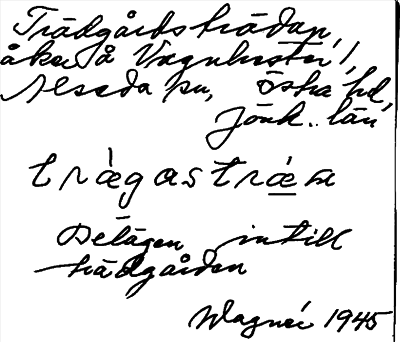 Trädgårdsträdan,
åker å Vagnhester 1,
Alseda sn, Östra hd,
Jönk. län
trǽgastrǽn
Belägen intill
trädgården
Wagnér 1945